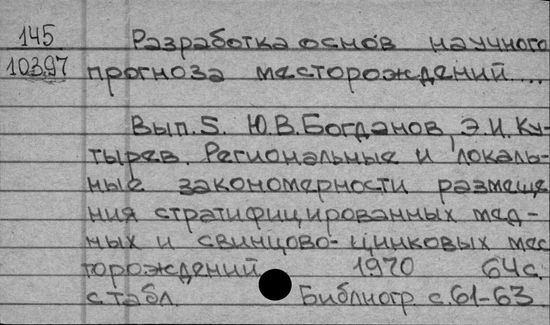 145 Разработка основ научного
10397 прогноза месторождений....
Вып. 5. Ю.В. Богданов, Э.И. Ку-
тырев. Региональные и локаль-
ные закономерности размеще
ния стратифицированных мед-
ных и свинцово-цинковых мес
торождений 1970 64с.
с табл. Библиогр с.61-63